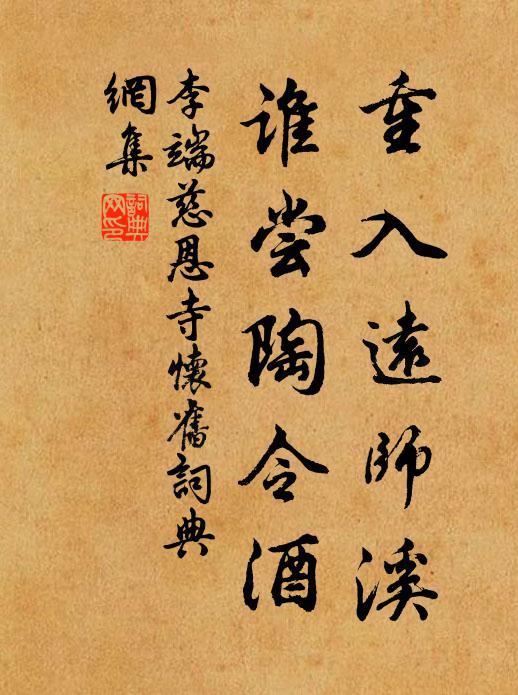 重入遠師溪
誰嘗陶令酒
李端慈恩寺懷舊詞典
網集
詞典
网印